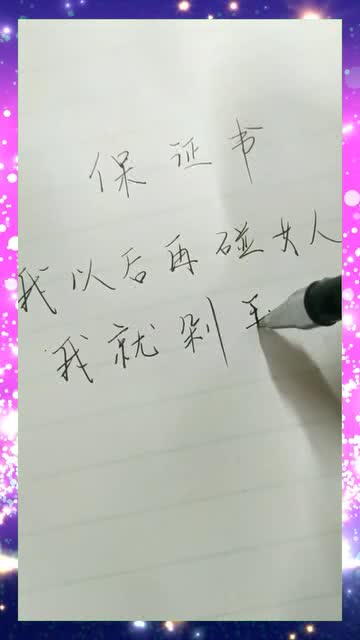 保证书
我以后再碰女人
我就剁